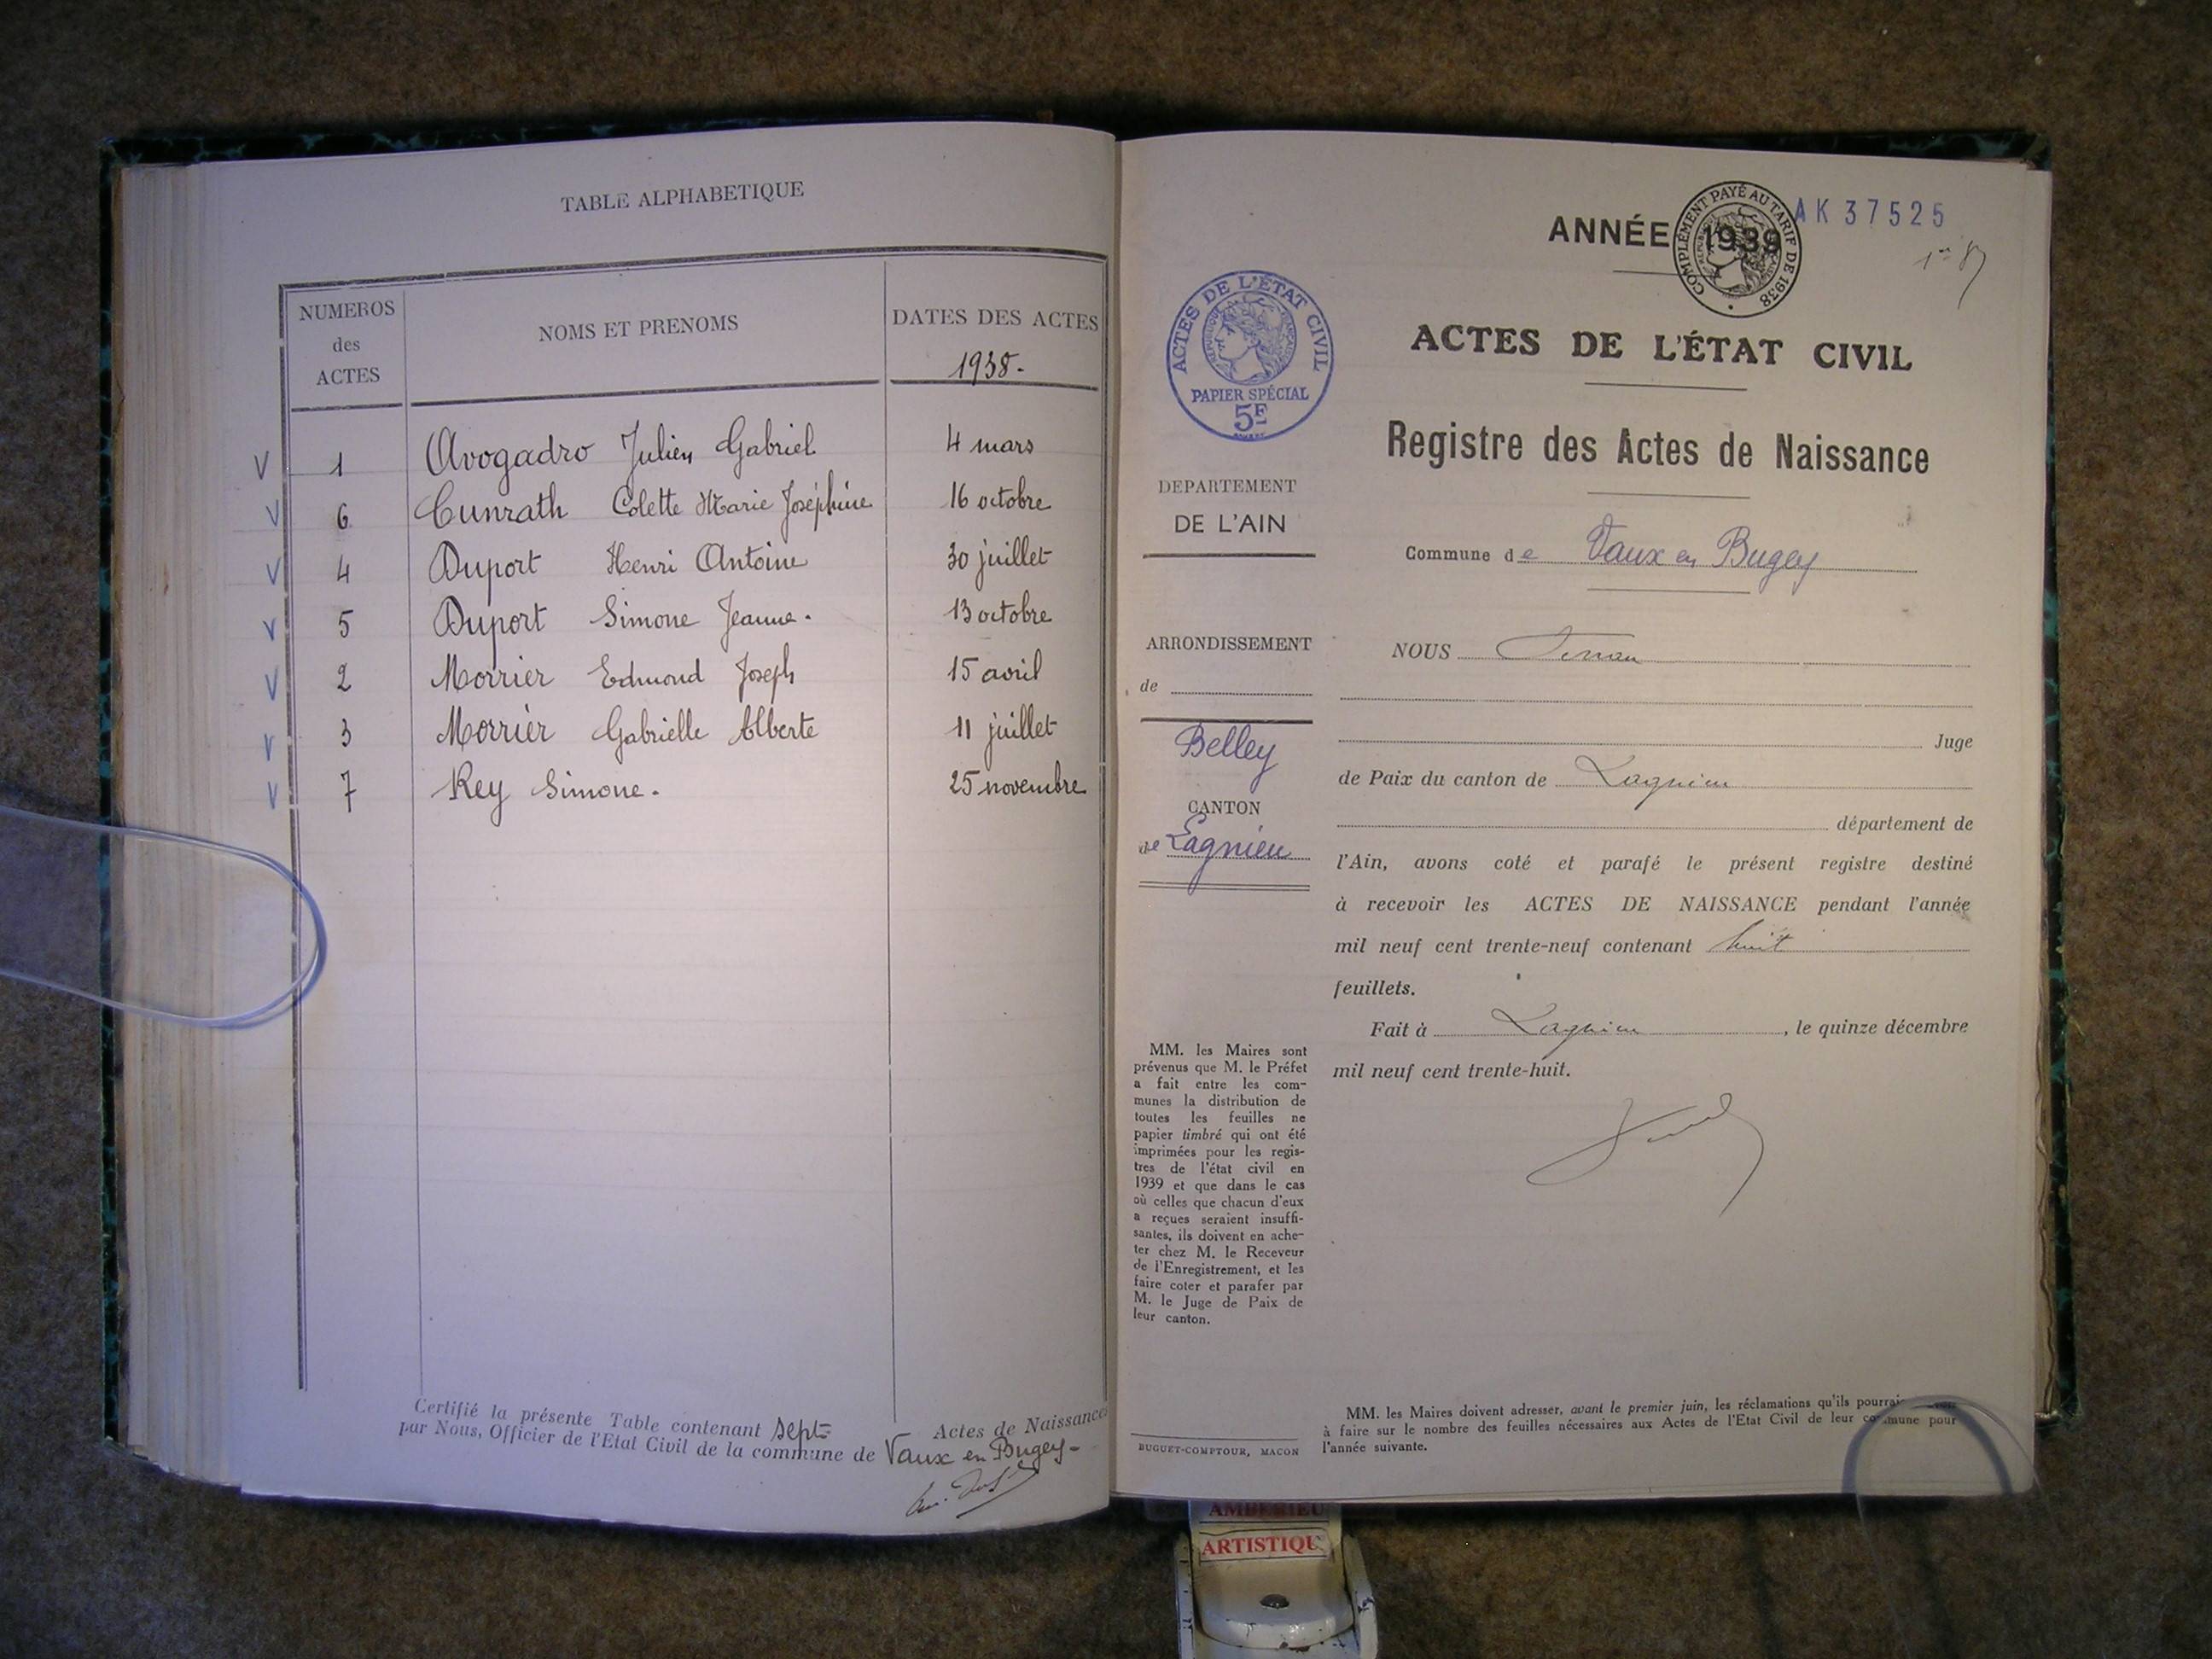 TABLE ALPHABETIQUE
NUMEROS
des
ACTES
NOMS ET PRENOMS
DATES DES ACTES
1938.-
V 1 Avogadro Julien Gabriel 4 mars
V 6 Cunrath Colette Marie Joséphine 16 octobre
V 4 Duport Henri Antoine 30 juillet
V 5 Duport Simone Jeanne. 13 octobre
V 2 Morrier Edmond Joseph 15 avril
V 3 Morrier Gabrielle Alberte 11 juillet
V 7 Rey Simone. 25 novembre
Certifié la présente Table contenant sept Actes de Naissances
par Nous, Officier de l'Etat Civil de la commune de Vaux en Bugey-
ANNÉE 1939
COMPLÉMENT PAYÉ AU TARIF DE 1938
AK 37525
ACTES DE L'ÉTAT CIVIL
RÉPUBLIQUE FRANÇAISE
PAPIER SPÉCIAL
5F
ACTES DE L'ÉTAT CIVIL
Registre des Actes de Naissance
DEPARTEMENT
DE L'AIN
Commune de Vaux en Bugey
ARRONDISSEMENT
de
Belley
CANTON
de Lagnieu
NOUS
Juge
de Paix du canton de Lagnieu
département de
l'Ain, avons coté et parafé le présent registre destiné
à recevoir les ACTES DE NAISSANCE pendant l'année
mil neuf cent trente-neuf contenant huit
feuillets.
Fait à Lagnieu, le quinze décembre
mil neuf cent trente-huit.
MM. les Maires sont
prévenus que M. le Préfet
a fait entre les com-
munes la distribution de
toutes les feuilles ne
papier timbré qui ont été
imprimées pour les regis-
tres de l'état civil en
1939 et que dans le cas
où celles que chacun d'eux
a reçues seraient insuffi-
santes, ils doivent en ache-
ter chez M. le Receveur
de l'Enregistrement, et les
faire coter et parafer par
M. le Juge de Paix de
leur canton.
BUGUET-COMPTOUR, MACON
MM. les Maires doivent adresser, avant le premier juin, les réclamations qu'ils
à faire sur le nombre des feuilles nécessaires aux Actes de l'Etat Civil de leur commune pour
l'année suivante.
AMBERIEU
ARTISTIQU